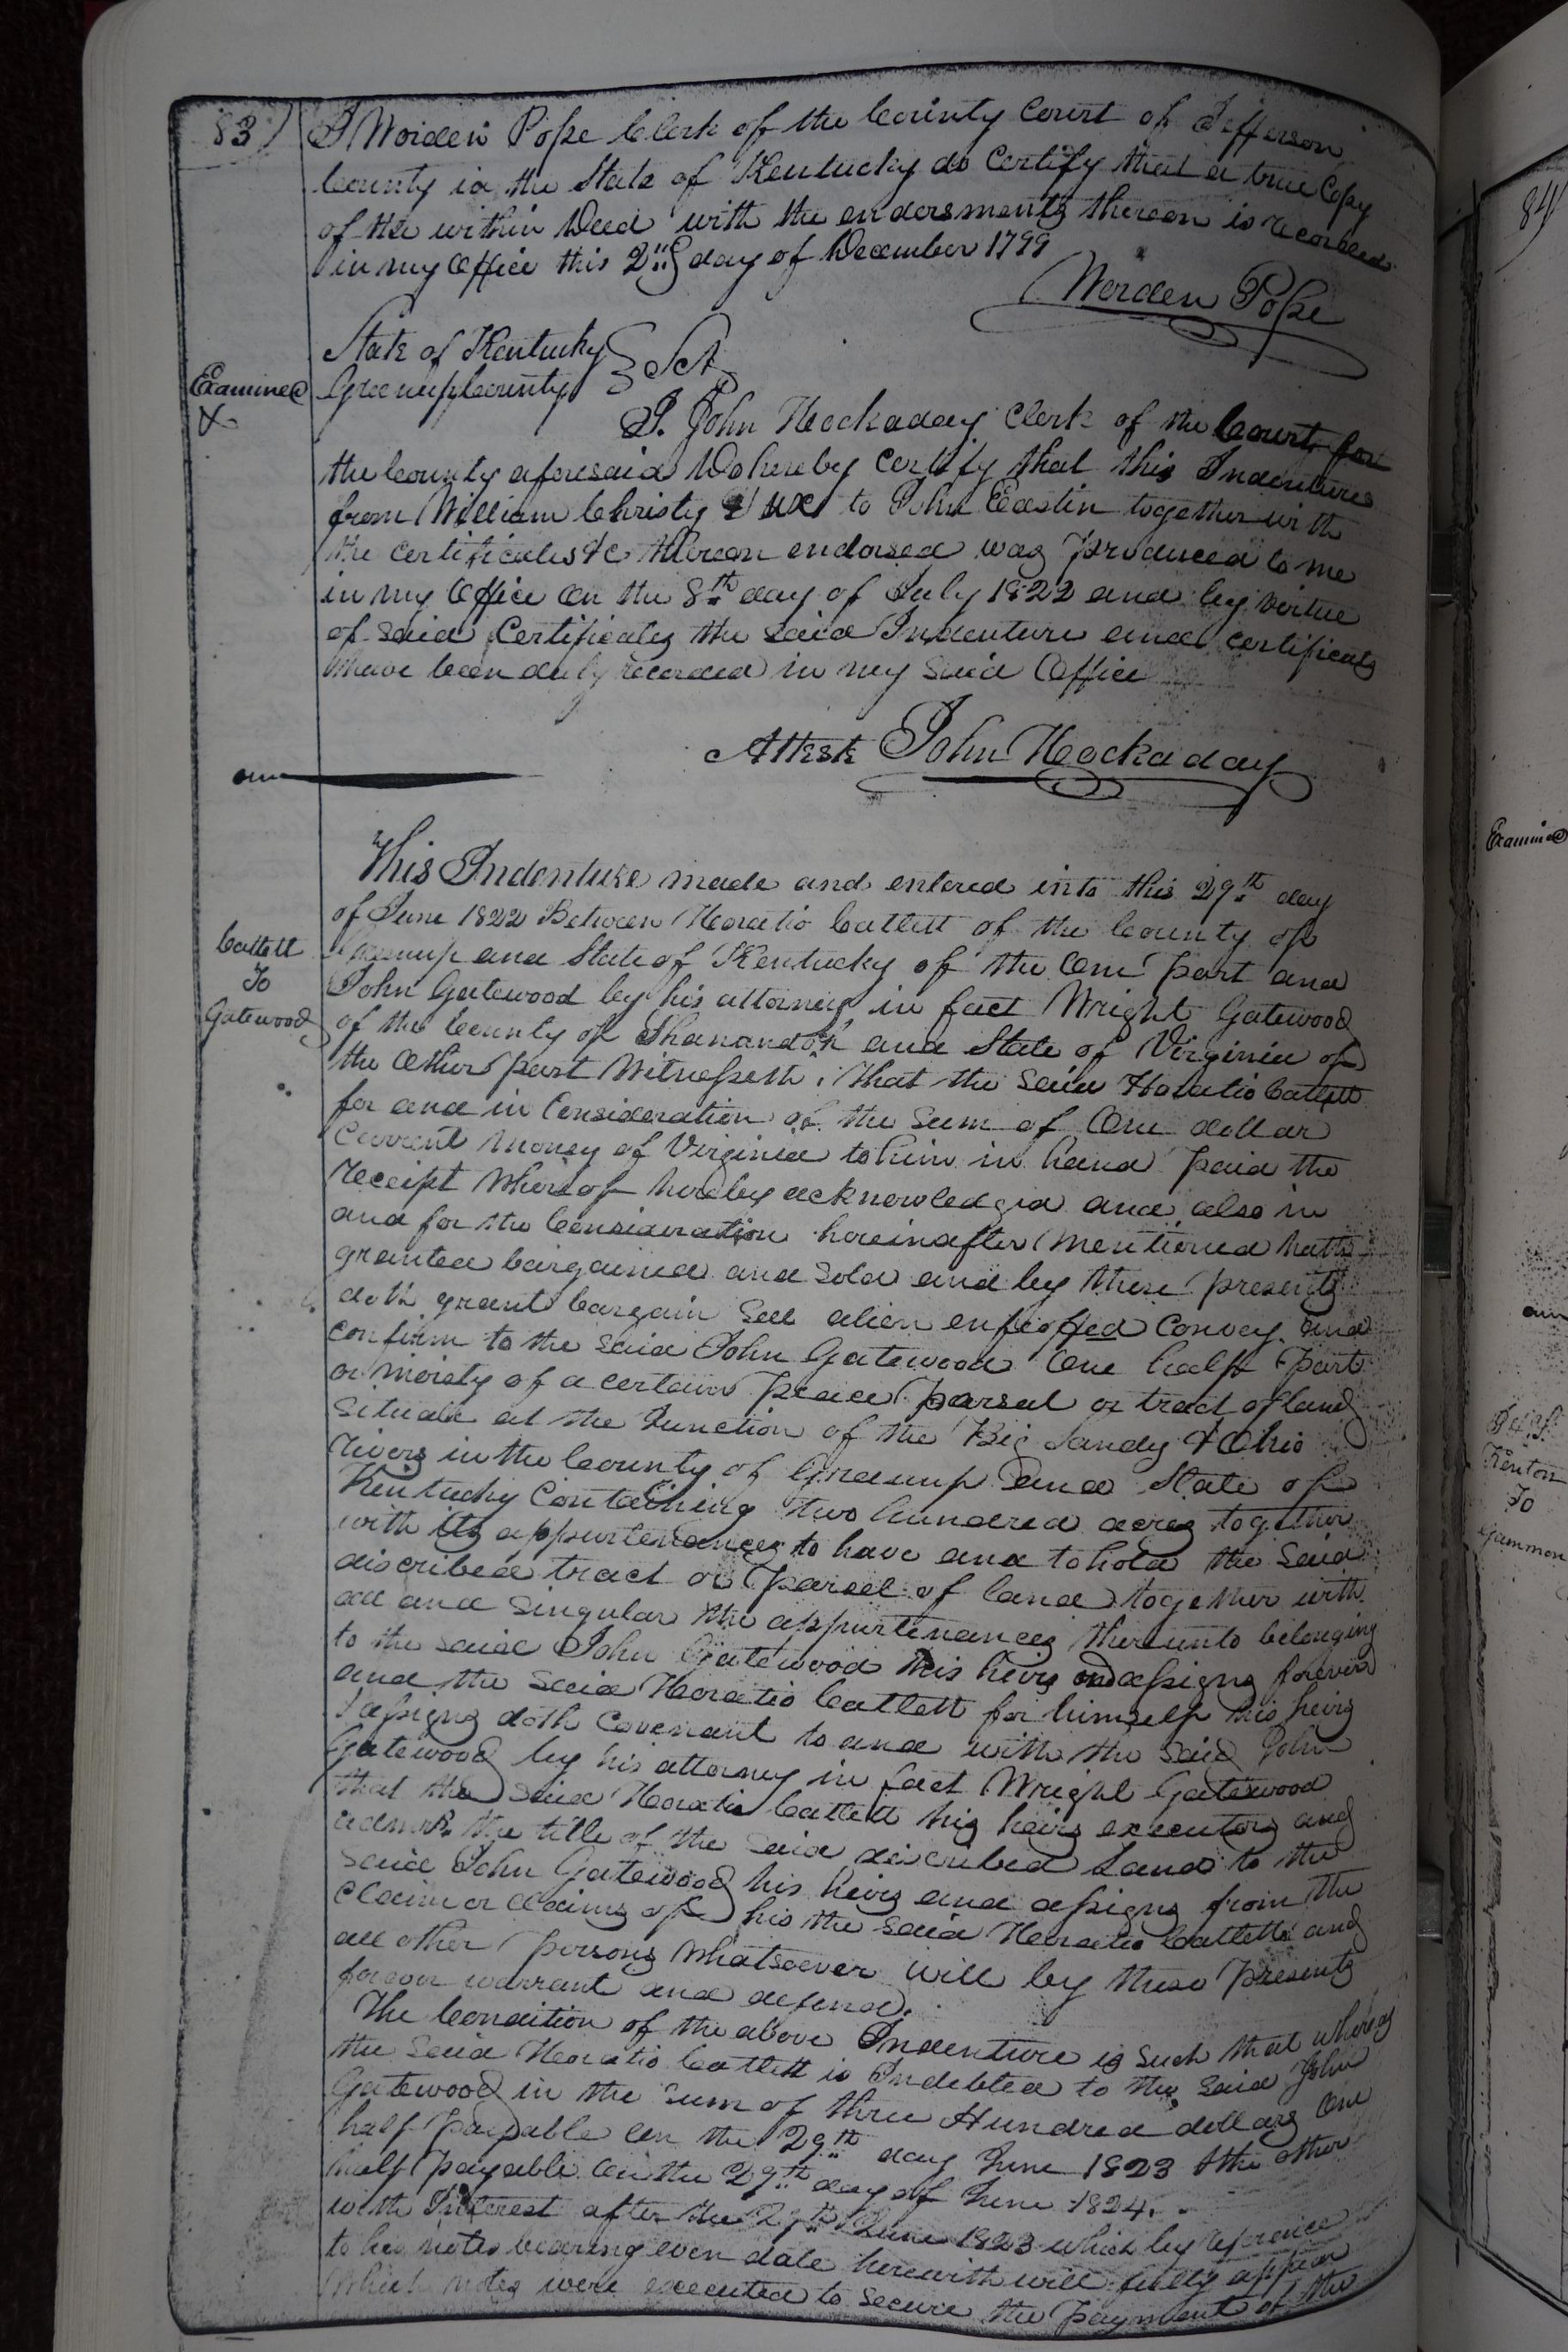 83)
I Worden Pope Clerk of the County Court of Jefferson
County in the State of Kentucky do Certify that a true Copy
of the within Deed with the endorsments thereon is recorded
in my Office this 2nd day of December 1799
Worden Pope
State of Kentucky
Greenup County } Sct
Examined
I. John Hockaday Clerk of the Court for
the County aforesaid Do hereby Certify that this Indenture
from William Christy & ux to John Eastin together with
the certificates &c thereon endorsed was produced to me
in my Office on the 8th day of July 1822 and by virtue
of said Certificates the said Indenture and certificates
have been duly recorded in my said Office
Attest John Hockaday
This Indenture made and entered into this 29th day
of June 1822 Between Horatio Catlett of the County of
Greenup and State of Kentucky of the One part and
Catlett
To
Gatewood
John Gatewood by his attorney in fact Wright Gatewood
of the County of Shanandoh and State of Virginia of
the other part Witnesseth, that the said Horatio Catlett
for and in Consideration of the Sum of One dollar
Current Money of Virginia to him in hand paid the
receipt Whereof hereby acknowledged and also in
and for the Consideration hereinafter Mentioned hath
granted bargained and sold and by these presents
doth grant bargain Sell alien enfeoffed Convey and
confirm to the said John Gatewood One half part
or moiety of a certain peace parsal or tract of land
Situate at the Junction of the Big Sandy & Ohio
Rivers in the County of Greenup and State of
Kentucky Containing two hundred acres together
with its appurtenances to have and to hold the Said
discribed tract or parsel of land together with
all and Singular the appurtenances thereunto belonging
to the said John Gatewood his heirs and assigns forever
and the said Horatio Catlett for himself his heirs
& assigns doth Covenant to and with the said John
Gatewood by his attorney in fact Wright Gatewood
that the Said Horatio Catlett his heirs executors and
admrs. the title of the said discribed Land to the
said John Gatewood his heirs and assigns from the
Claim or Claims of his the said Horatio Catlett and
all other persons Whatsoever will by these presents
forever warrant and defend.
The Condition of the above Indenture is such that whereas
the said Horatio Catlett is Indebted to the said John
Gatewood in the sum of three Hundred dollars One
half payable on the 29th day June 1823 & the other
half payable on the 29th day of June 1824.
with Interest after the 29th June 1823 which by reference
to his notes bearing even date herewith will fully appear
Which notes were executed to secure the payment of the
84
Examined
Kenton
To
Gammon